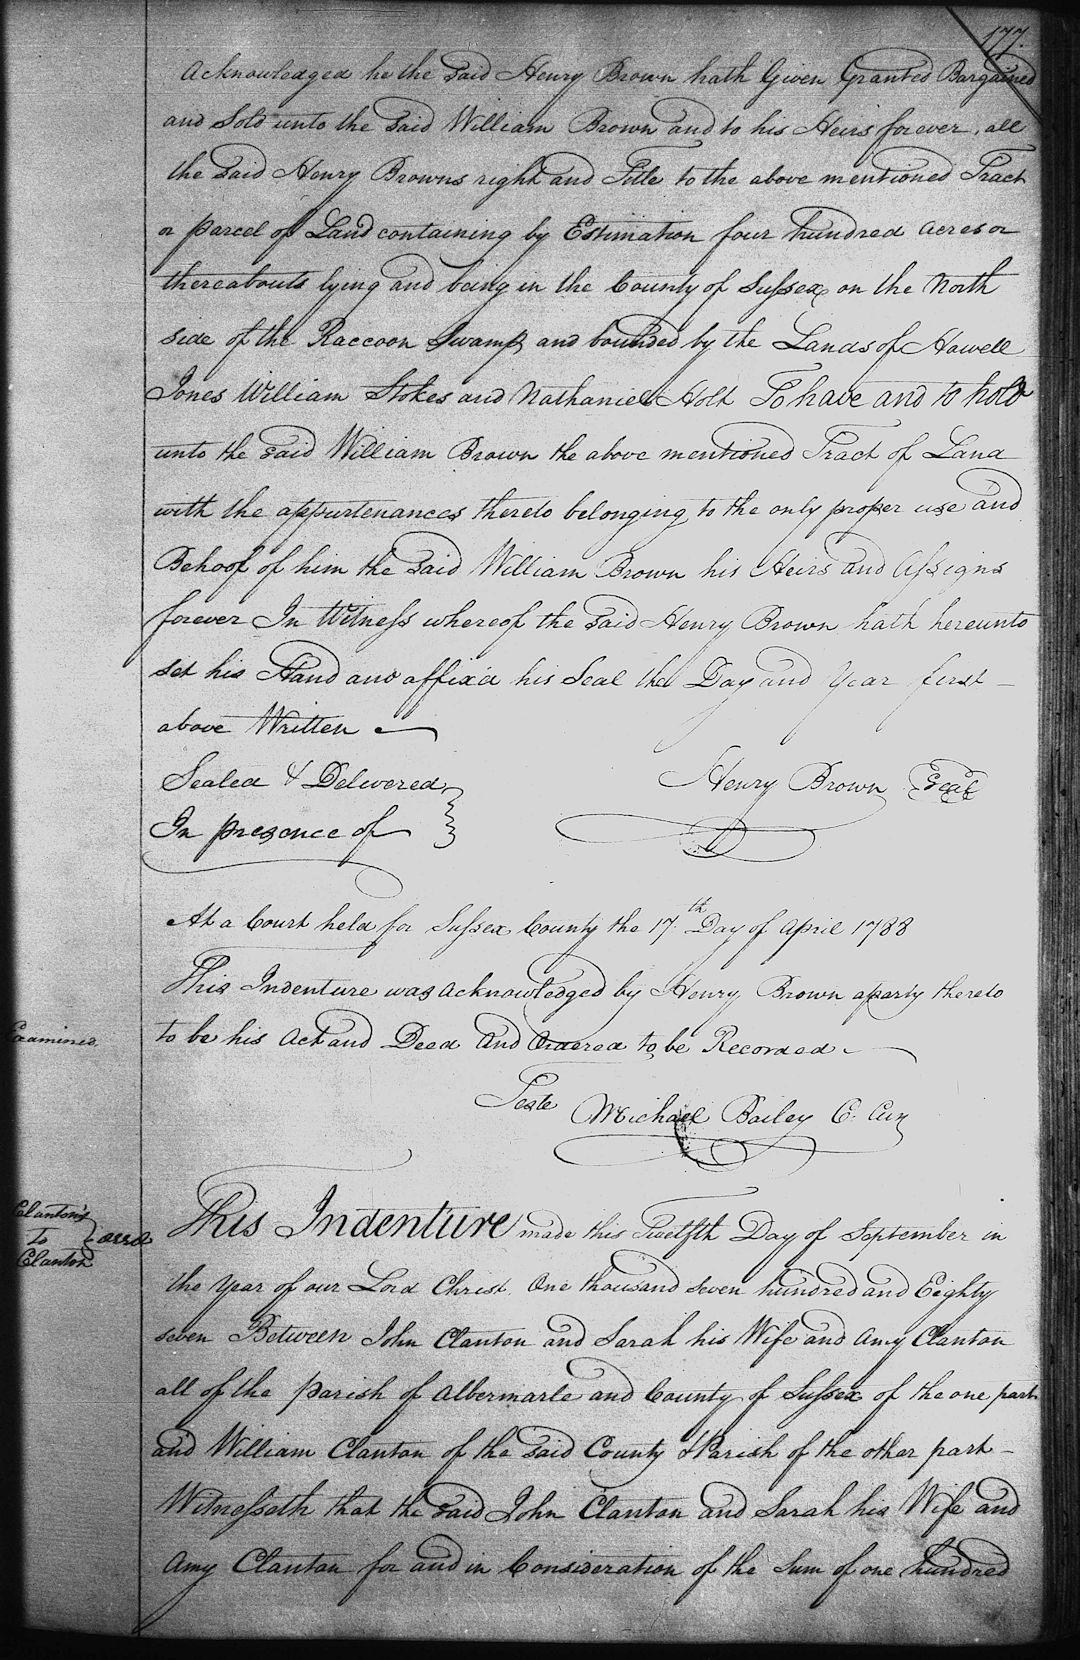 177.
Acknowledged he the said Henry Brown hath Given Granted Bargained
and Sold unto the said William Brown and to his Heirs forever, all
the said Henry Browns right and Title to the above mentioned Tract
or parcel of Land containing by Estimation four hundred acres or
thereabouts lying and being in the County of Sussex on the North
side of the Raccoon Swamp and bounded by the Lands of Howell
Jones William Stokes and Nathaniel Holt To have and to hold
unto the said William Brown the above mentioned Tract of Land
with the appurtenances thereto belonging to the only proper use and
Behoof of him the said William Brown his Heirs and Assigns
forever In Witness whereof the said Henry Brown hath hereunto
set his Hand and affix'd his Seal the Day and Year first –
above Written
Sealed & Delivered
In presence of
Henry Brown Seal
At a Court held for Sussex County the 17th Day of April 1788
This Indenture was acknowledged by Henry Brown a party thereto
Examined.
to be his Act and Deed And Ordered to be Recorded
Teste Michael Bailey C. Cur
Clanton's
to
Clanton
This Indenture made this Twelfth Day of September in
the Year of our Lord Christ One thousand seven hundred and Eighty
seven Between John Clanton and Sarah his Wife and Amy Clanton
all of the parish of Albermarle and County of Sussex of the one part
and William Clanton of the said County & Parish of the other part –
Witnesseth that the said John Clanton and Sarah his Wife and
Amy Clanton for and in Consideration of the Sum of one hundred